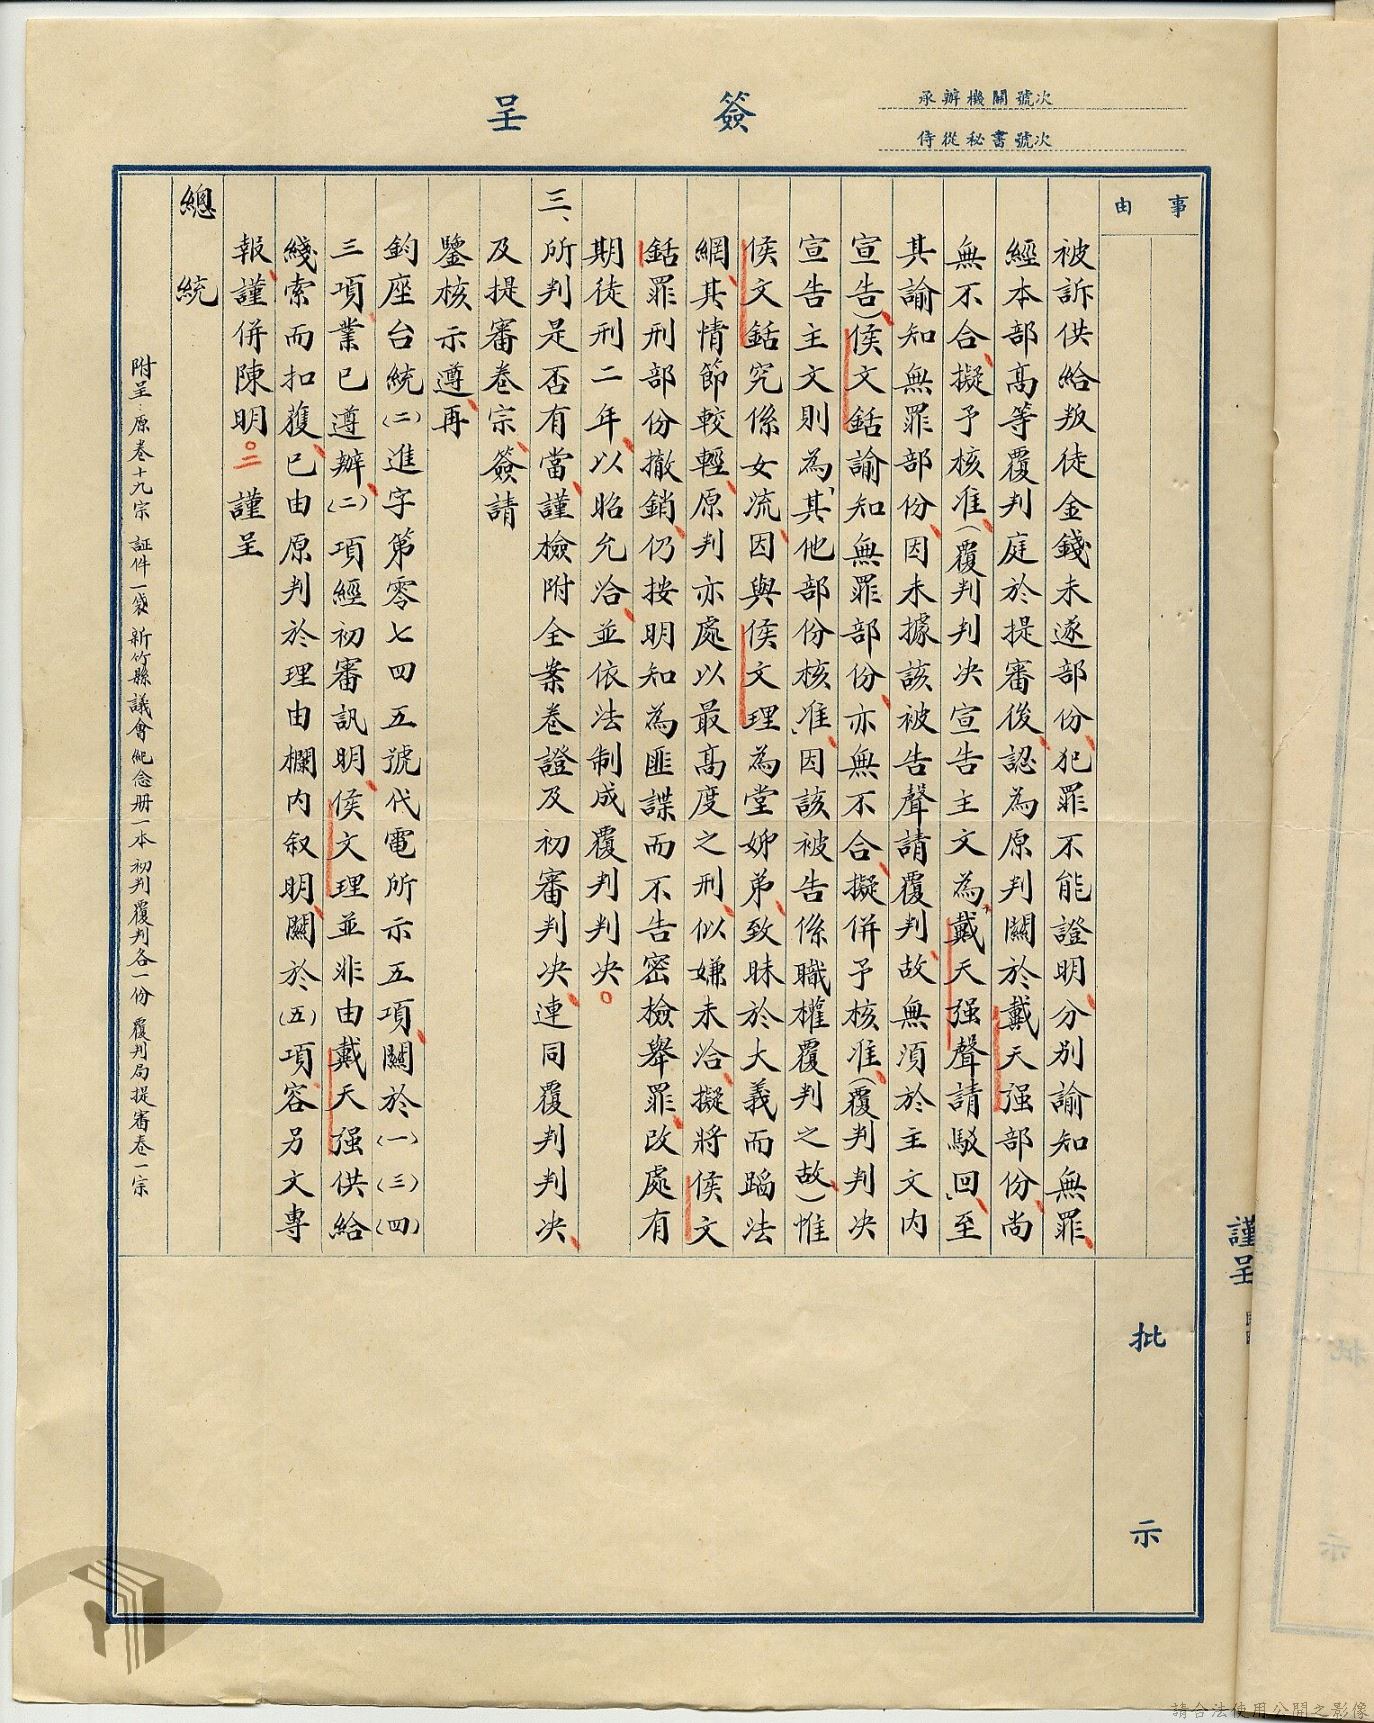 承辦機關號次
侍從秘書號次
簽呈
事由
被訴供給叛徒金錢未遂部份犯罪不能證明分別諭知無罪
經本部高等覆判庭於提審後認為原判關於戴天强部份尚
無不合擬予核准（覆判判决宣告主文為戴天强聲請駁回，至
其諭知無罪部份因未據該被告聲請覆判故無須於主文內
宣告）侯文銛諭知無罪部份亦無不合擬併予核准（覆判判决
宣告主文則為「其他部份核准」因該被告係職權覆判之故）惟
侯文銛究係女流因與侯文理為堂姊弟致昧於大義而蹈法
網其情節較輕原判亦處以最高度之刑似嫌未洽擬將侯文
銛罪刑部份撤銷仍按明知為匪諜而不告密檢舉罪改處有
期徒刑二年以昭允洽並依法制成覆判判决。
三、所判是否有當謹檢附全案卷證及初審判决連同覆判判决
及提審卷宗簽請
鑒核示遵再
鈞座台統(二)進字第零七四五號代電所示五項關於(一)(三)(四)
三項業已遵辦(二)項經初審訊明侯文理並非由戴天强供給
綫索而扣獲已由原判於理由欄內叙明關於(五)項容另文專
報謹併陳明。謹呈
總統
附呈：原卷十九宗 証件一袋 新竹縣議會紀念册一本 初判覆判各一份 覆判局提審卷一宗
批示
謹呈
請合法使用公開之影像